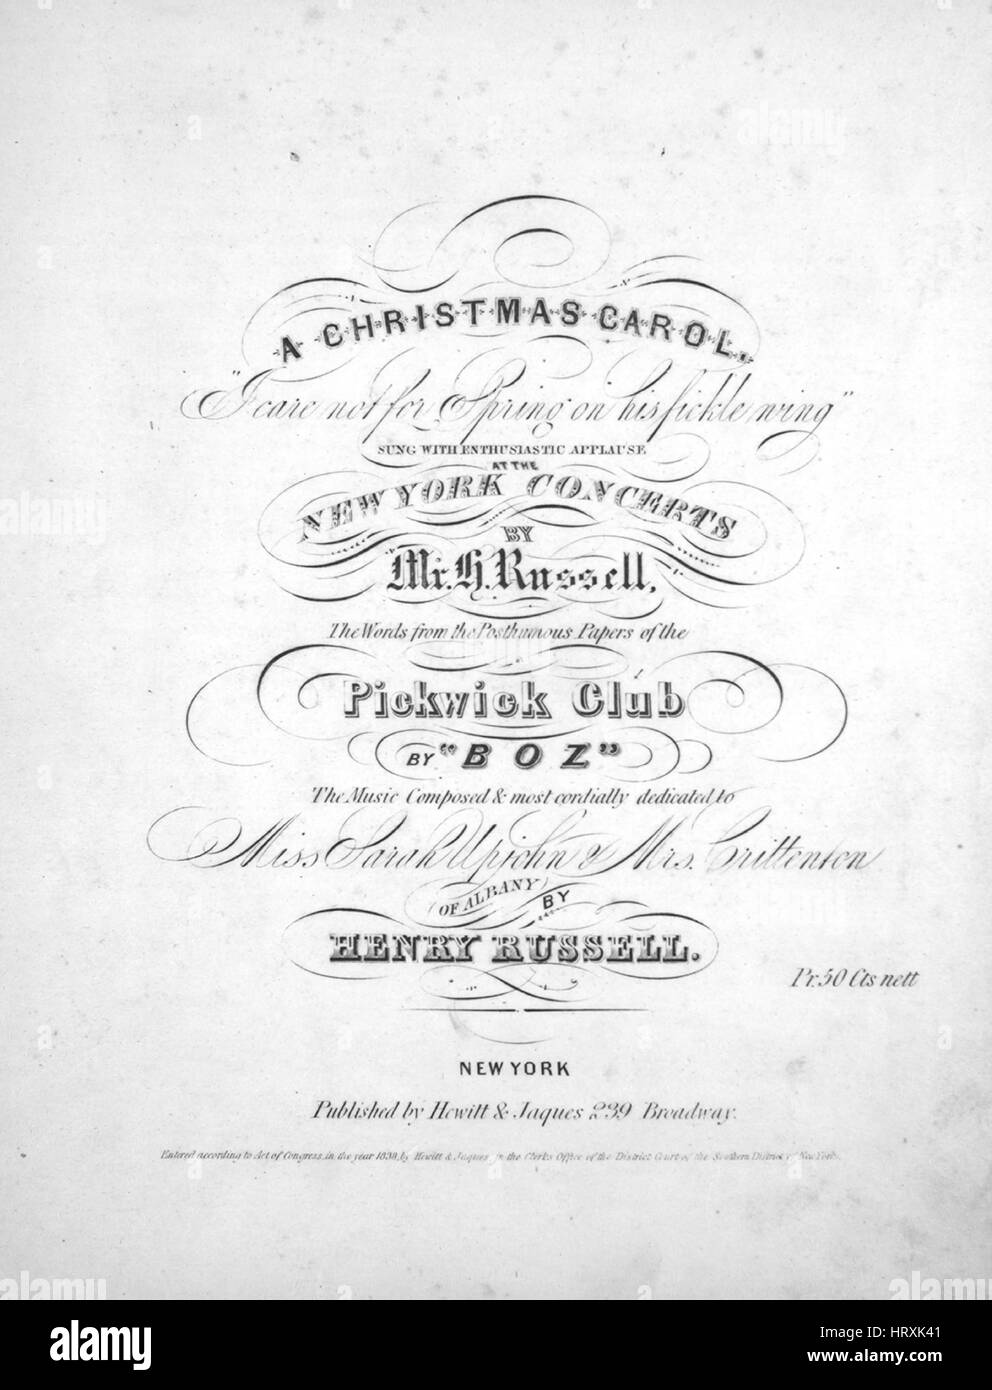 A CHRISTMAS CAROL.
"I care not for Spring on his fickle wing"
SUNG WITH ENTHUSIASTIC APPLAUSE
AT THE
NEW YORK CONCERTS
BY
Mr. H. Russell,
The Words from the Posthumous Papers of the
Pickwick Club
BY "BOZ"
The Music Composed & most cordially dedicated to
Miss Sarah Upjohn & Mrs. Crittenton
(OF ALBANY)
BY
HENRY RUSSELL.
Pr. 50 Cts nett
NEW YORK
Published by Hewitt & Jaques 239 Broadway.
Entered according to Act of Congress, in the year 1838, by Hewitt & Jaques in the Clerks Office of the District Court of the Southern District of New York.
alamy
Image ID: HRXK41
www.alamy.com